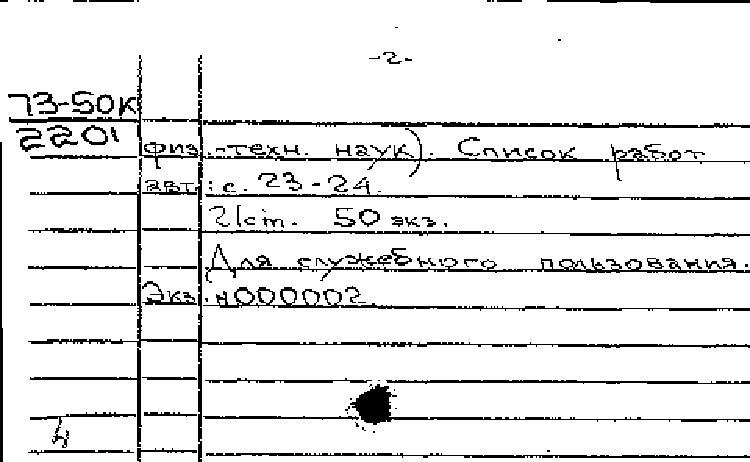 -2-
73-50К
2201
физ.-техн. наук). Список работ
авт.: с. 23-24.
21 cm. 50 экз.
Для служебного пользования.
Экз. N000002.